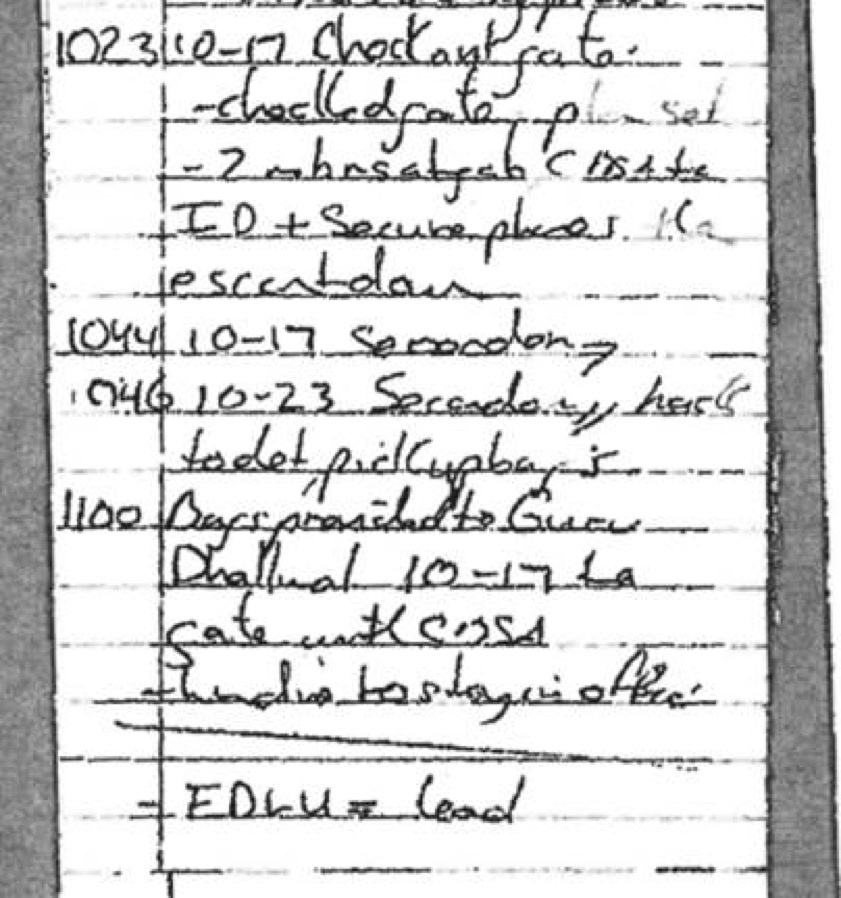 1023 10-17 Check out gate.
- checked gate, plan set
- 2 mbrs at gate CBSA to
ID + Secure phones
escort down
1044 10-17 Secondary
1046 10-23 Secondary, back
to det, pick up bags
1100 Bags provided to Guru
Dhaliwal 10-17 to
gate with CBSA
- Lundie to stay in office
- EDLU = lead